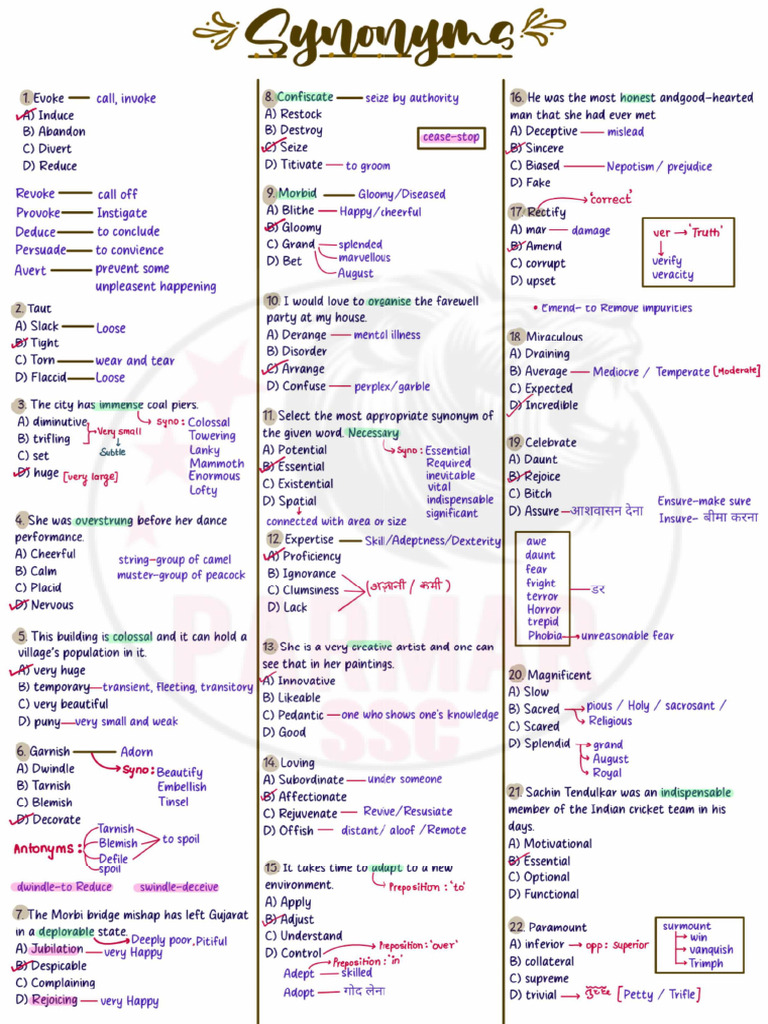 Synonyms
1. Evoke — call, invoke
A) Induce
B) Abandon
C) Divert
D) Reduce
Revoke — call off
Provoke — Instigate
Deduce — to conclude
Persuade — to convience
Avert — prevent some
unpleasent happening
2. Taut
A) Slack — Loose
B) Tight
C) Torn — wear and tear
D) Flaccid — Loose
3. The city has immense coal piers.
A) diminutive
B) trifling
Very small
Subtle
C) set
D) huge [very large]
Syno: Colossal
Towering
Lanky
Mammoth
Enormous
Lofty
4. She was overstrung before her dance
performance.
A) Cheerful
B) Calm
C) Placid
D) Nervous
string-group of camel
muster-group of peacock
5. This building is colossal and it can hold a
village's population in it.
A) very huge
B) temporary — transient, fleeting, transitory
C) very beautiful
D) puny — very small and weak
6. Garnish — Adorn
A) Dwindle
B) Tarnish
C) Blemish
D) Decorate
Syno: Beautify
Embellish
Tinsel
Antonyms:
Tarnish
Blemish
Defile
spoil
to spoil
dwindle-to Reduce swindle-deceive
7. The Morbi bridge mishap has left Gujarat
in a deplorable state.
Deeply poor, Pitiful
A) Jubilation — very Happy
B) Despicable
C) Complaining
D) Rejoicing — very Happy
8. Confiscate — seize by authority
A) Restock
B) Destroy
C) Seize
D) Titivate — to groom
cease-stop
9. Morbid — Gloomy/Diseased
A) Blithe — Happy/cheerful
B) Gloomy
C) Grand — splended
marvellous
August
D) Bet
10. I would love to organise the farewell
party at my house.
A) Derange — mental illness
B) Disorder
C) Arrange
D) Confuse — perplex/garble
11. Select the most appropriate synonym of
the given word. Necessary
A) Potential
B) Essential
C) Existential
D) Spatial
connected with area or size
Syno: Essential
Required
inevitable
vital
indispensable
significant
12. Expertise — Skill/Adeptness/Dexterity
A) Proficiency
B) Ignorance
C) Clumsiness
D) Lack
(अज्ञानी / कमी)
13. She is a very creative artist and one can
see that in her paintings.
A) Innovative
B) Likeable
C) Pedantic — one who shows one's knowledge
D) Good
14. Loving
A) Subordinate — under someone
B) Affectionate
C) Rejuvenate — Revive/Resusiate
D) Offish — distant/ aloof /Remote
15. It takes time to adapt to a new
environment.
Preposition: 'to'
A) Apply
B) Adjust
C) Understand
D) Control
Preposition: 'over'
Preposition: 'in'
Adept — skilled
Adopt — गोद लेना
16. He was the most honest andgood-hearted
man that she had ever met
A) Deceptive — mislead
B) Sincere
C) Biased — Nepotism / prejudice
D) Fake
17. Rectify
'correct'
A) mar — damage
B) Amend
C) corrupt
D) upset
ver → 'Truth'
verify
veracity
• Emend- to Remove impurities
18. Miraculous
A) Draining
B) Average — Mediocre / Temperate [Moderate]
C) Expected
D) Incredible
19. Celebrate
A) Daunt
B) Rejoice
C) Bitch
D) Assure — आशवासन देना
Ensure-make sure
Insure- बीमा करना
awe
daunt
fear
fright
terror
Horror
trepid
Phobia → unreasonable fear
डर
20. Magnificent
A) Slow
B) Sacred → pious / Holy / sacrosant /
Religious
C) Scared
D) Splendid → grand
August
Royal
21. Sachin Tendulkar was an indispensable
member of the Indian cricket team in his
days.
A) Motivational
B) Essential
C) Optional
D) Functional
22. Paramount
A) inferior → opp: superior
B) collateral
C) supreme
D) trivial → तुच्छ [Petty / Trifle]
surmount
win
vanquish
Trimph
PARMAR
SSC